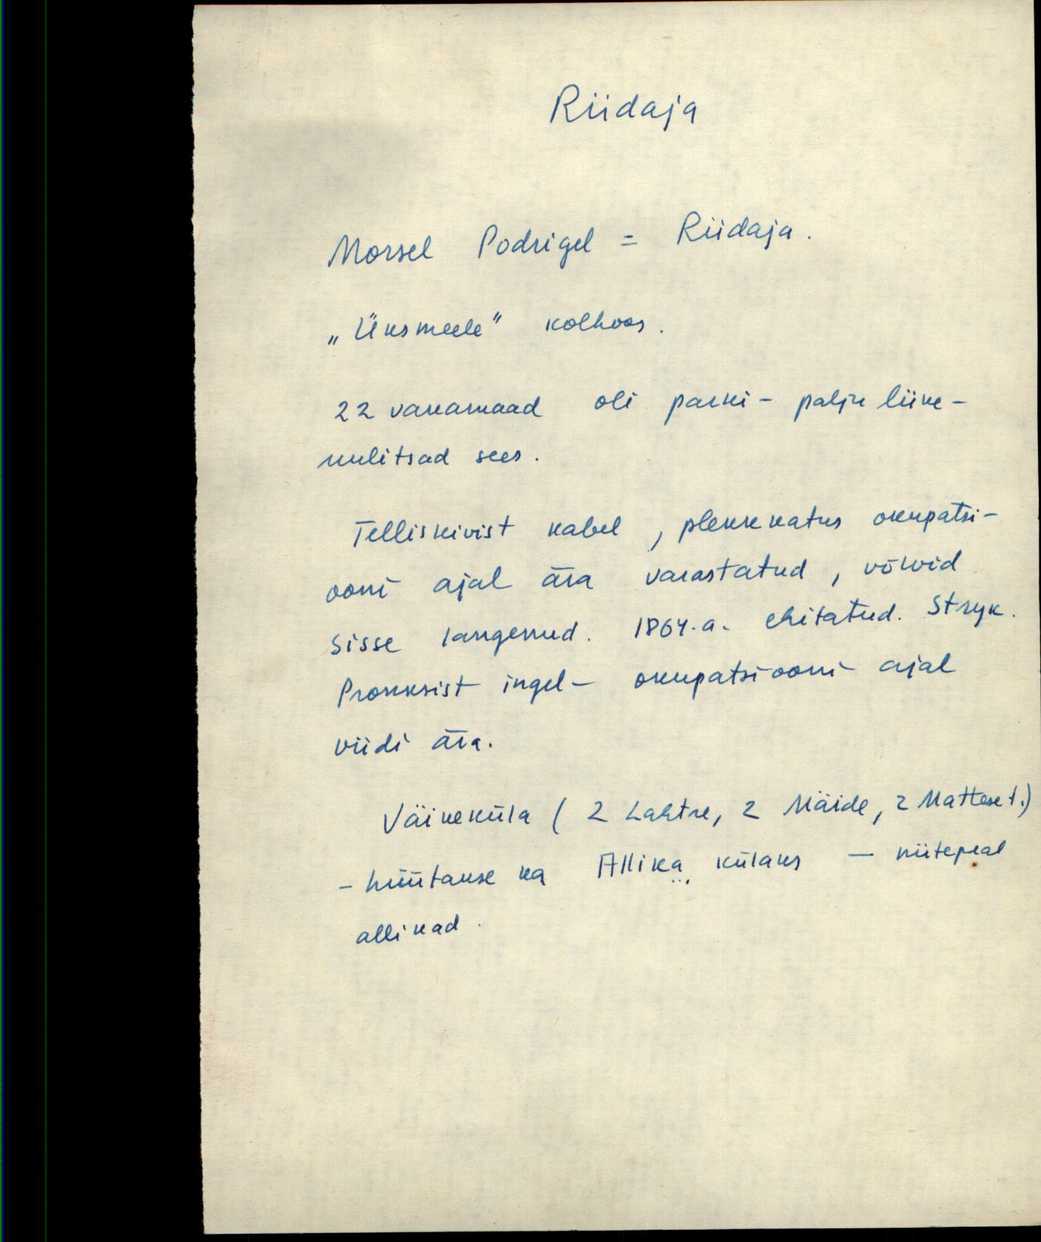 Riidaja
Morsel Podrigel = Riidaja.
„Üksmeele" kolhoos.
22 vakamaad oli parki - palju liiva-
mulitsad sees.
Telliskivist kabel, plekk katus okupatsi-
ooni ajal ära varastatud, võlvid
sisse langenud. 1864.a. ehitatud. Stryk.
Pronksist ingel - okupatsiooni ajal
viidi ära.
Väikeküla (2 Lahtre, 2 Mäide, 2 )
- hüütakse ka Allika külaks — niitepeal
allikad.